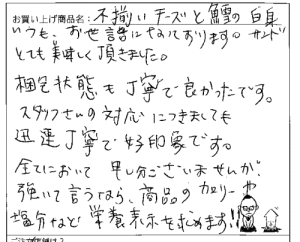 お買い上げ商品名：不揃いチーズと鱈の白身
いつも、お世話になっております。サンド
とても美しく頂きました。
梱包状態も丁寧で良かったです。
スタッフさんの対応につきましても
迅速丁寧で好印象です。
全てにおいて申し分ございませんが、
強いて言うなら、商品のカロリーや
塩分など栄養表示を求めます!!